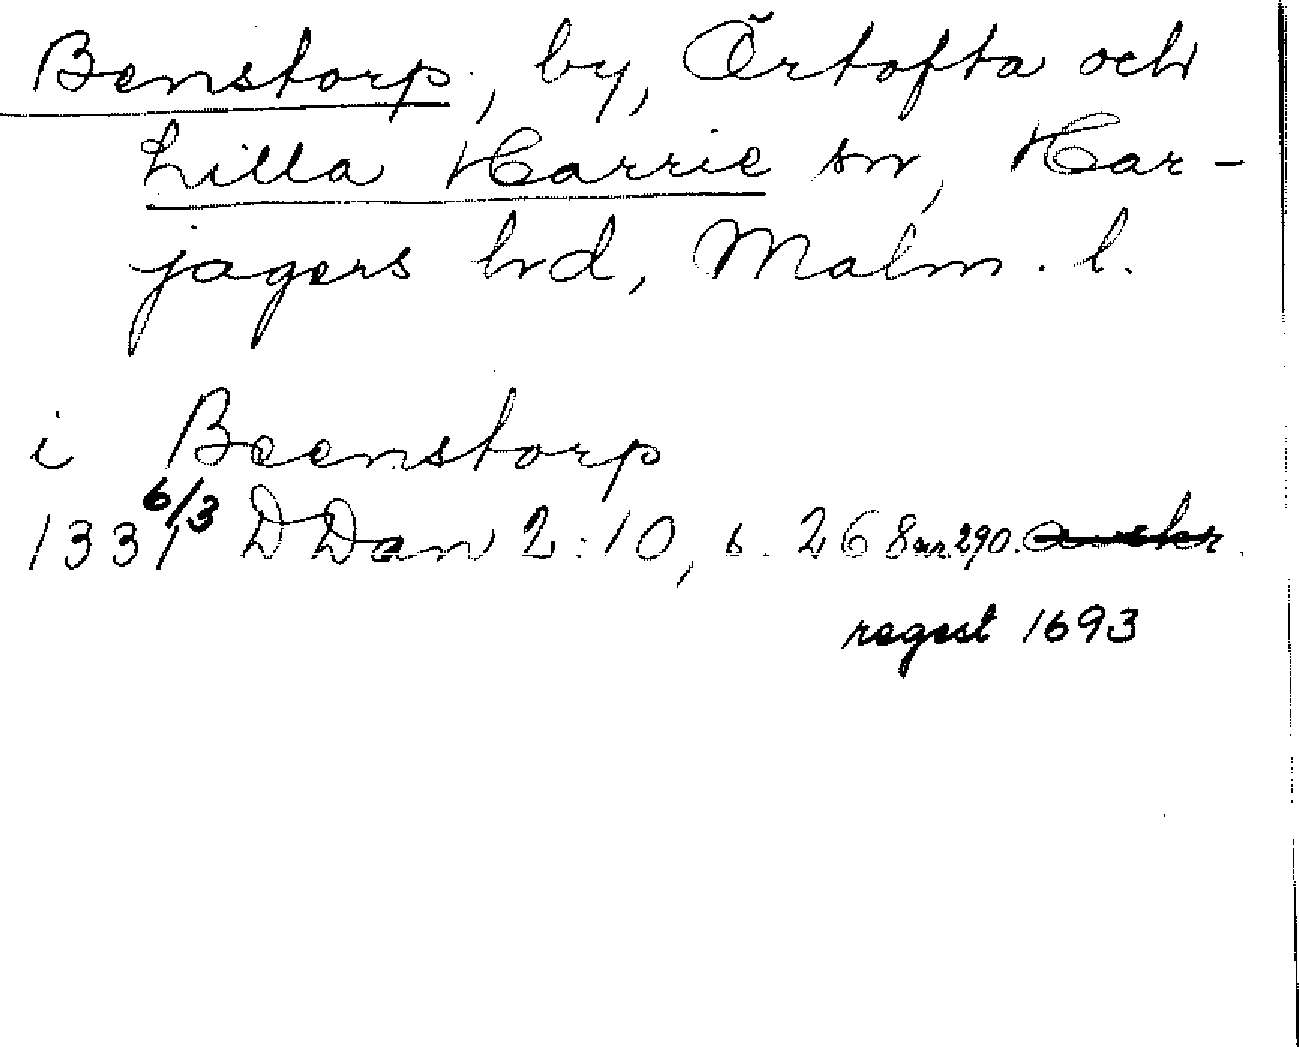 Benstorp, by, Örtofta och
Lilla Harrie sn, Har-
jagers hd, Malm. l.
i Beenstorp
1331 6/3 DDan 2:10, s. 268 nr. 290. avskr.
regest 1693